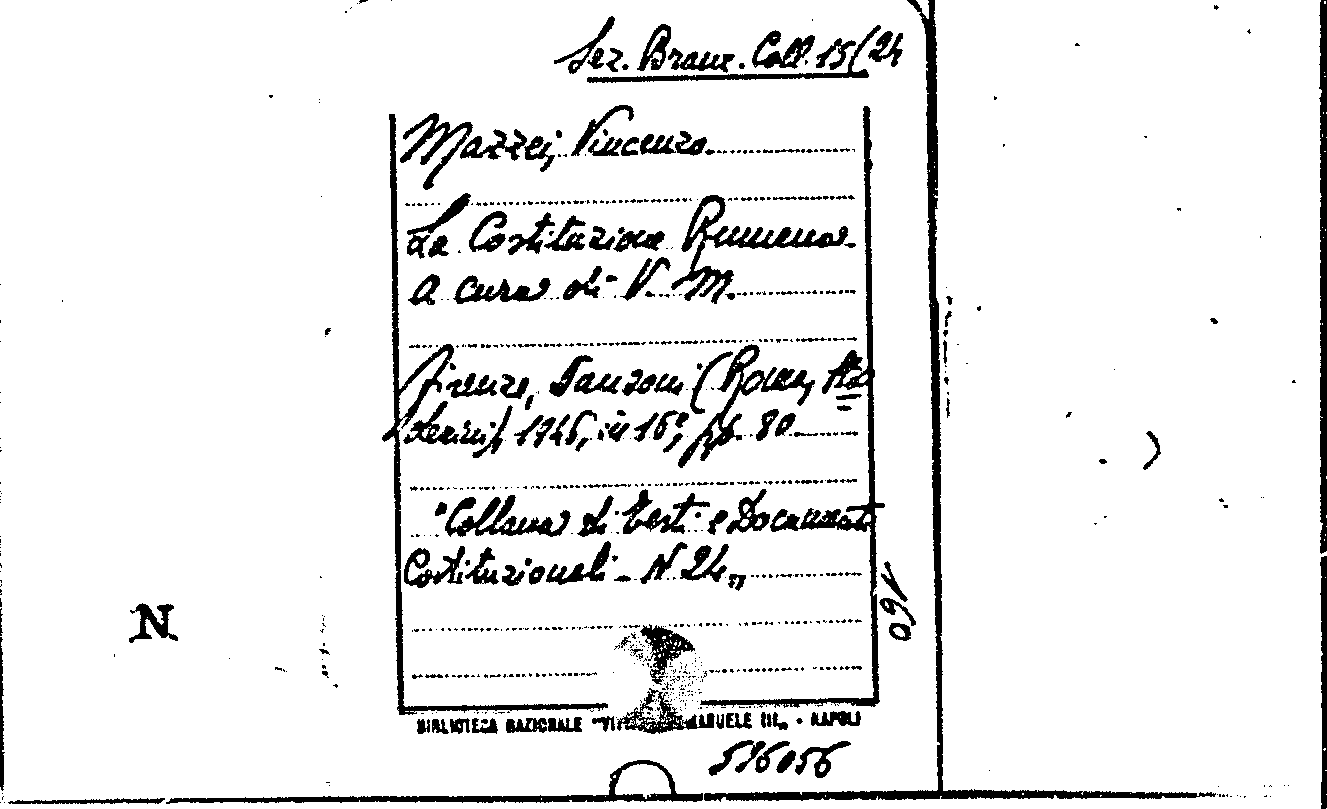 Sez. Branc. Coll. 15(24
Mazzei, Vincenzo
La Costituzione Rumena
a cura di V. M.
Firenze, Sansoni (Roma,
1946, in 16°, pp. 80
"Collana di Testi e Documenti
Costituzionali - N 24"
160
N
BIBLIOTECA NAZIONALE "VITT EMANUELE III" - NAPOLI
596056